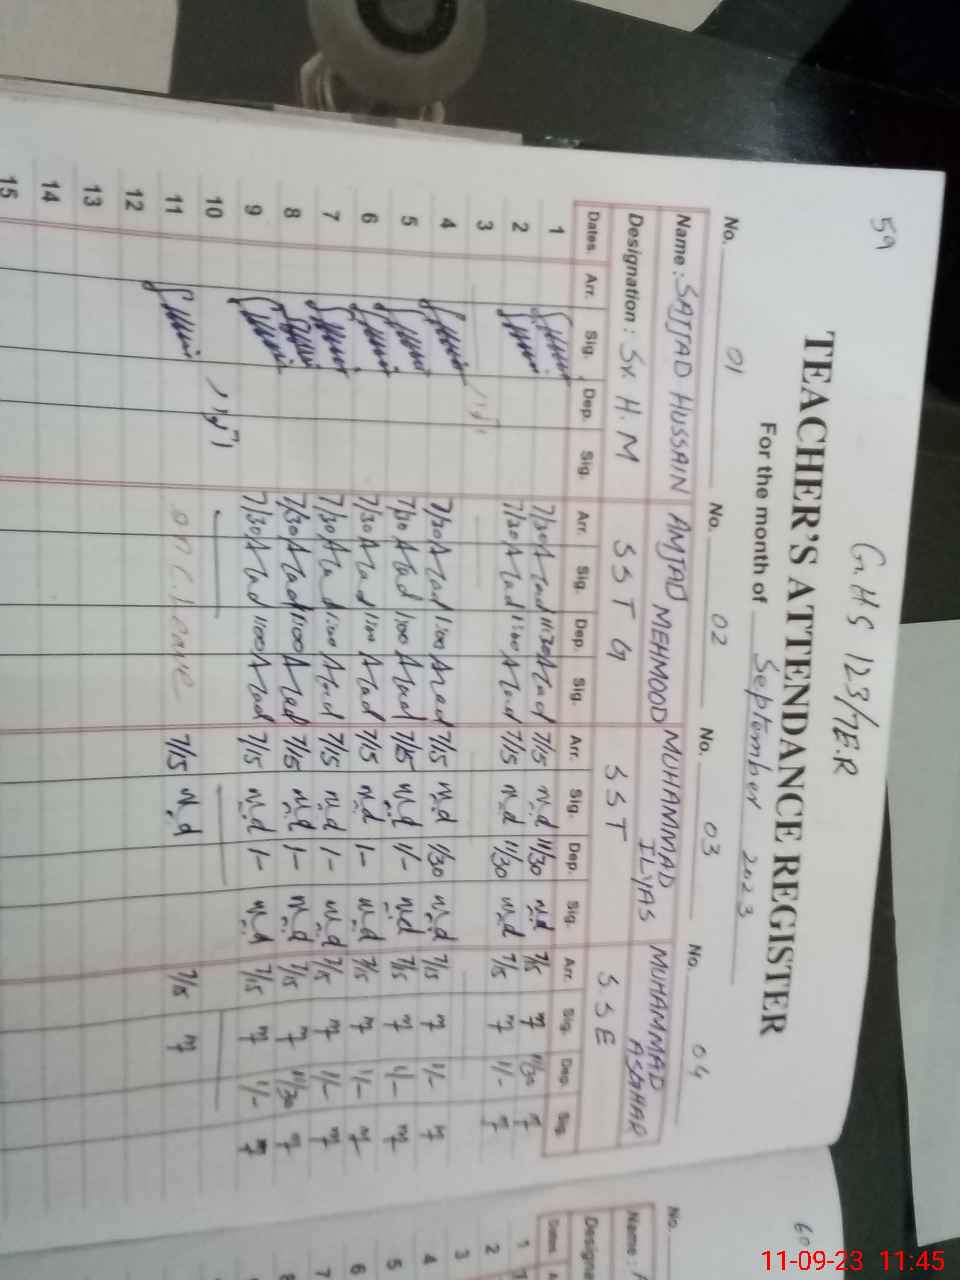 59
G.H S 123/7E.R
TEACHER'S ATTENDANCE REGISTER
For the month of September 2023
No. 01 No. 02 No. 03 No. 04
Name : SAJJAD HUSSAIN AMJAD MEHMOOD MUHAMMAD ILYAS MUHAMMAD ASGHAR
Designation : Sr. H.M S S T G S S T S S E
Dates Arr. Sig. Dep. Sig. Arr. Sig. Dep. Sig. Arr. Sig. Dep. Sig. Arr. Sig. Dep. Sig.
1 7/30 11:30 7/15 11/30 7/15 11/30
2 7/30 1:00 7/15 11/30 7/15 1/-
3
4 7/30 1:00 7/15 1/30 7/15 1/-
5 7/30 1:00 7/15 1/- 7/15 1/-
6 7/30 1:00 7/15 1- 7/15 1/-
7 7/30 1:00 7/15 1- 7/15 1/-
8 7/30 1:00 7/15 1- 7/15 11/30
9 7/30 1:00 7/15 1- 7/15 1/-
10
11 on C. leave 7/15 7/15
12
13
14
15
60
No.
Name :
Designe
Dates
1
2
3
4
5
6
7
8
11-09-23 11:45